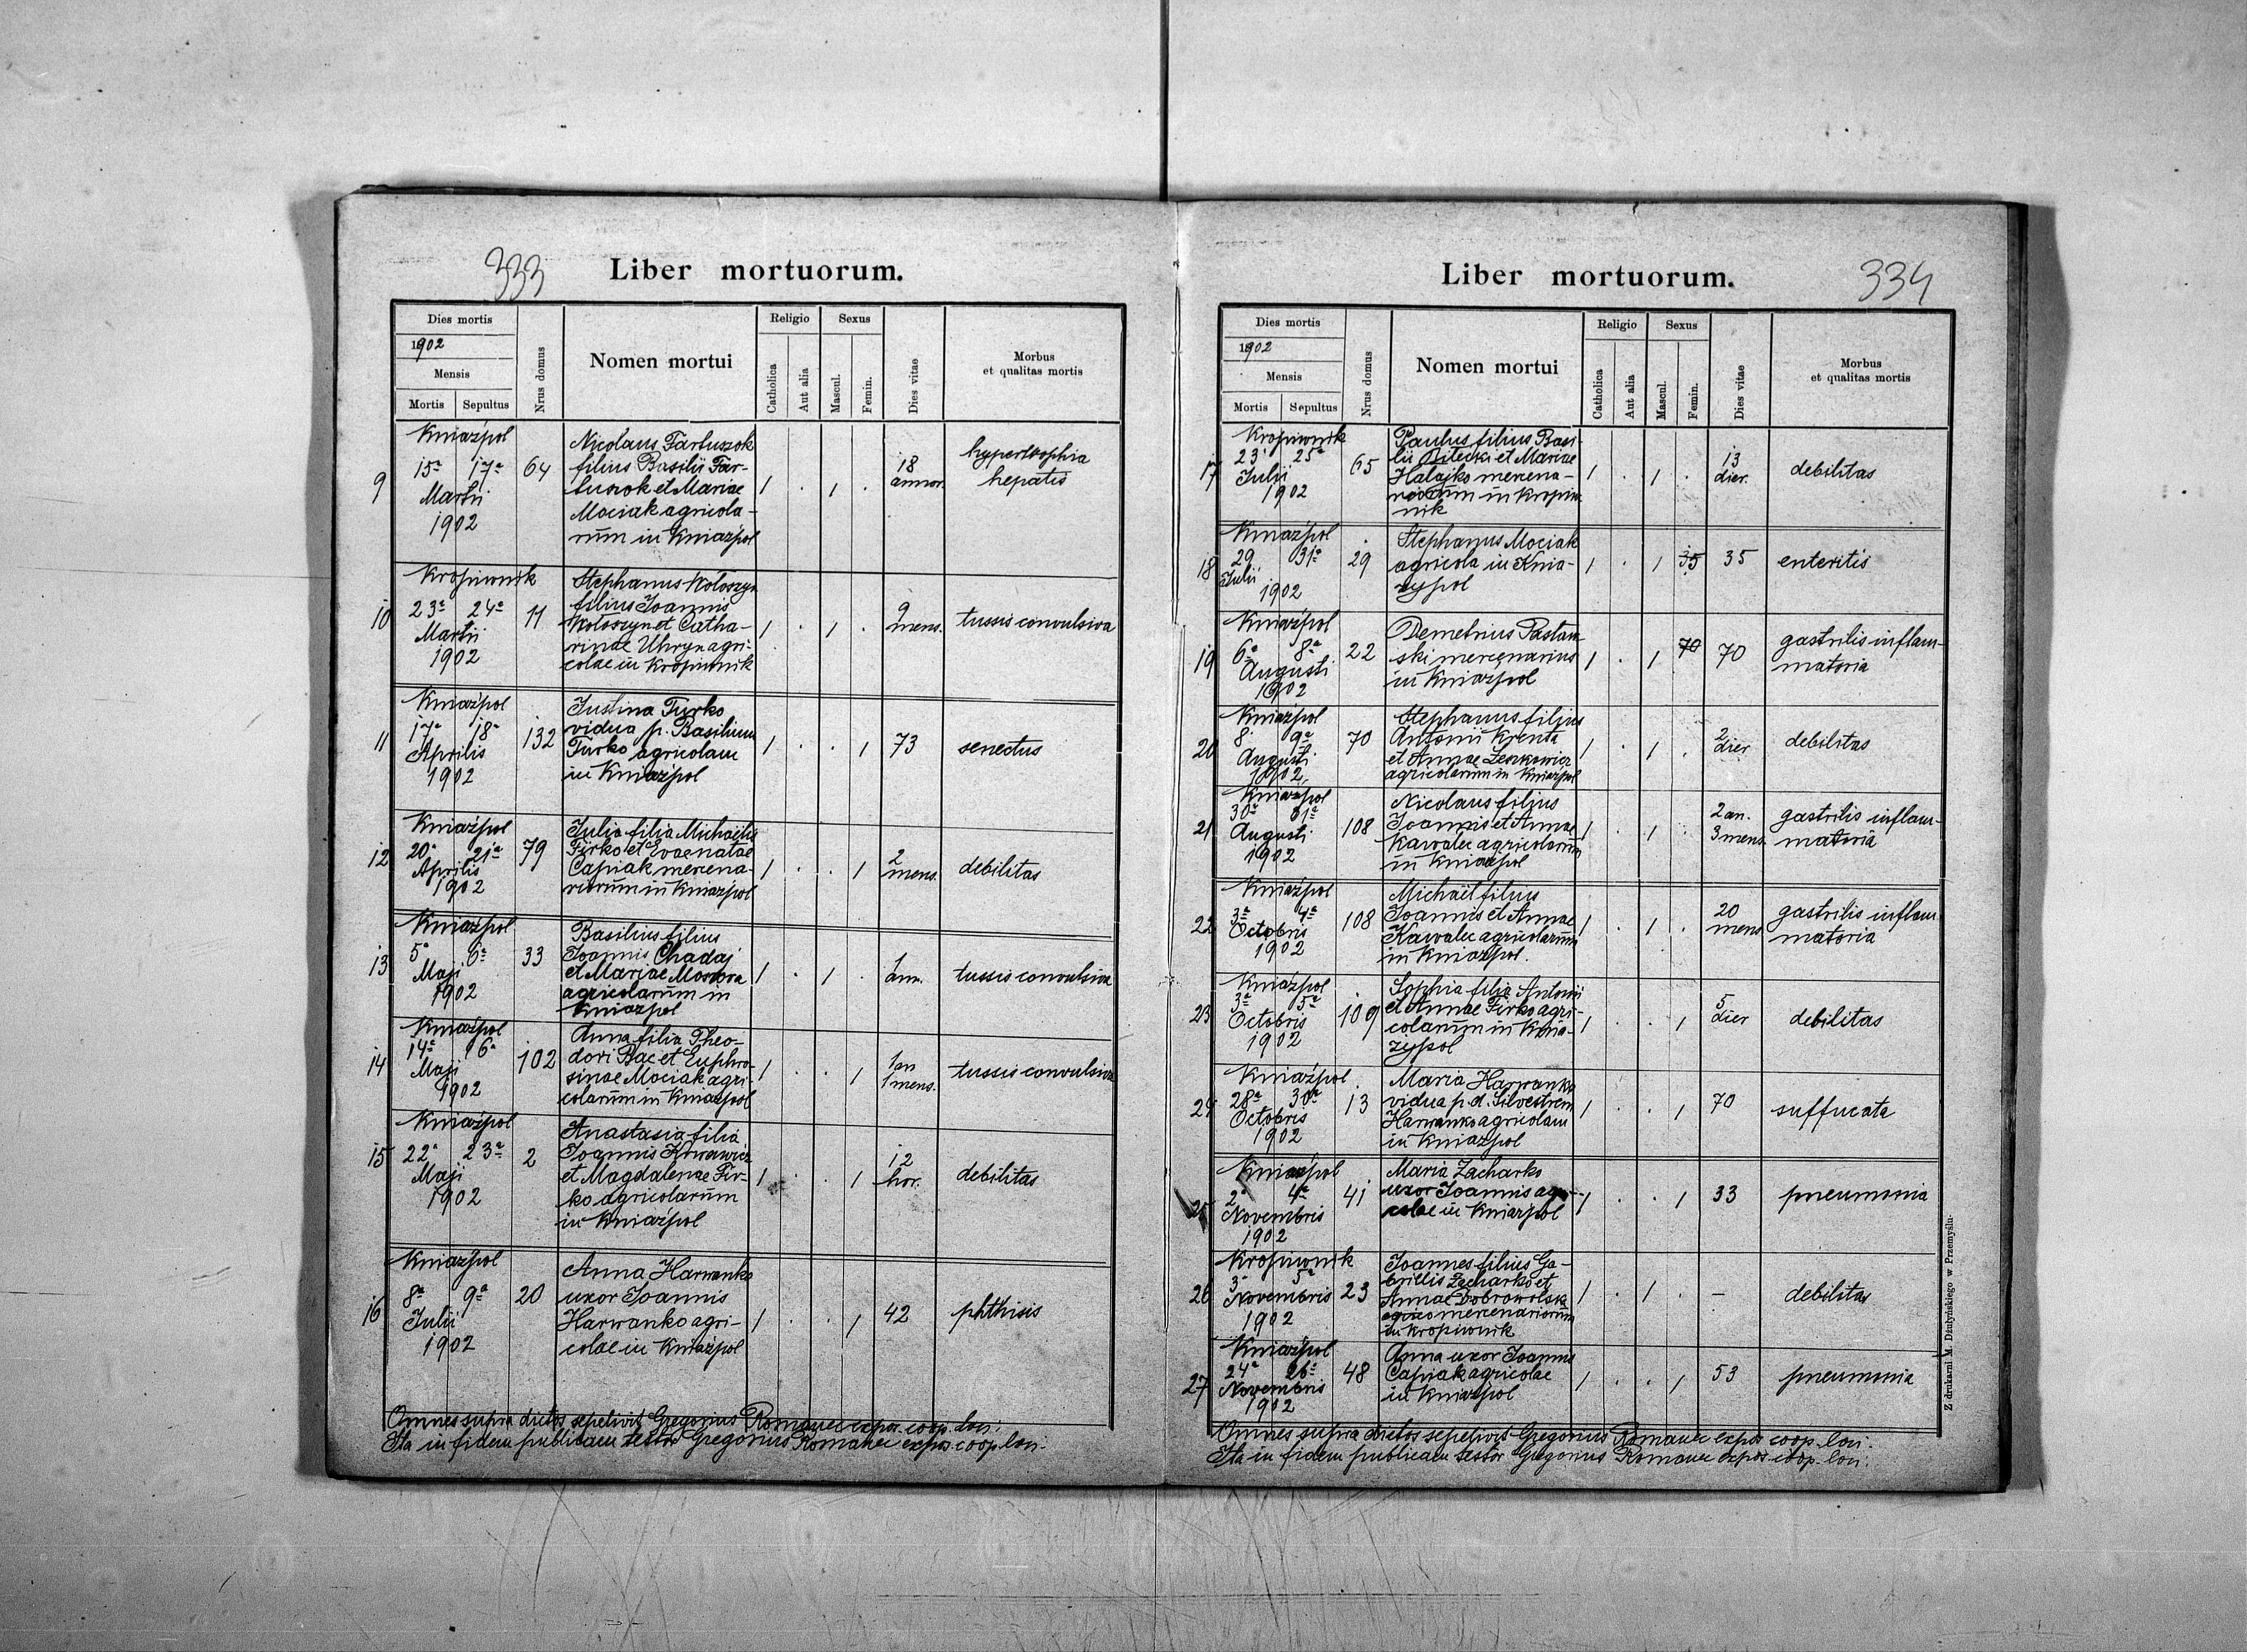 333
Liber mortuorum.
Dies mortis
1902
Mensis
Mortis
Sepultus
Nrus domus
Nomen mortui
Religio
Catholica
Aut alia
Sexus
Mascul.
Femin.
Dies vitae
Morbus
et qualitas mortis
9
Kniaźpol
15a 17a
Martii
1902
64
Nicolaus Fartuszok
filius Basilii Far-
tuszok et Mariae
Mociak agricola-
rum in Kniaźpol
1 . 1 .
18
annor.
hypertrophia
hepatis
10
Kropiwnik
23a 24a
Martii
1902
11
Stephanus Wołoszyn
filius Joannis
Wołoszyn et Catha-
rinae Uhryn agri-
colae in Kropiwnik
1 . 1 .
9
mens.
tussis convulsiva
11
Kniaźpol
17a 18a
Aprilis
1902
132
Justina Furko
vidua p. Basilium
Furko agricolam
in Kniaźpol
1 . . 1
73
senectus
12
Kniaźpol
20a 21a
Aprilis
1902
79
Julia filia Michaëlis
Firko et Evae natae
Capiak mercena-
riorum in Kniaźpol
1 . . 1
2
mens.
debilitas
13
Kniaźpol
5a 6a
Maji
1902
33
Basilius filius
Joannis Chadaj
et Mariae
agricolarum in
Kniaźpol
1 . 1 .
1
ann.
tussis convulsiva
14
Kniaźpol
14a 16a
Maji
1902
102
Anna filia Theo-
dori Bac et Euphro-
sinae Mociak agri-
colarum in Kniaźpol
1 . . 1
1 an
1 mens.
tussis convulsiva
15
Kniaźpol
22a 23a
Maji
1902
2
Anastasia filia
Joannis
et Magdalenae Fir-
ko agricolarum
in Kniaźpol
1 . . 1
12
hor.
debilitas
16
Kniaźpol
8a 9a
Julii
1902
20
Anna Harwanko
uxor Joannis
Harwanko agri-
colae in Kniaźpol
1 . . 1
42
phthisis
Omnes supra dictos sepelivit Gregorius Romanec expos. coop. loci.
Ita in fidem publicam testor Gregorius Romanec expos. coop. loci.
334
Liber mortuorum.
Dies mortis
1902
Mensis
Mortis
Sepultus
Nrus domus
Nomen mortui
Religio
Catholica
Aut alia
Sexus
Mascul.
Femin.
Dies vitae
Morbus
et qualitas mortis
17
Kropiwnik
23a 25a
Julii
1902
65
Paulus filius Basi-
lii Bilecki et Mariae
Halajko mercena-
riorum in Kropiw-
nik
1 . 1 .
13
dier.
debilitas
18
Kniaźpol
29 31a
Julii
1902
29
Stephanus Mociak
agricola in Knia-
zypol
1 . 1 35
35
enteritis
19
Kniaźpol
6a 8a
Augusti
1902
22
Demetrius Pastam-
ski mercenarius
in Kniaźpol
1 . 1 70
70
gastritis inflam-
matoria
20
Kniaźpol
8a 9a
Augusti
1902
70
Stephanus filius
Antonii Krenta
et Annae Leszkowicz
agricolarum in Kniaźpol
1 . 1 .
2
dier
debilitas
21
Kniaźpol
30a 31a
Augusti
1902
108
Nicolaus filius
Joannis et Annae
Kawalec agricolarum
in Kniaźpol
1 . 1 .
2 an.
3 mens.
gastritis inflam-
matoria
22
Kniaźpol
3a 4a
Octobris
1902
108
Michaël filius
Joannis et Annae
Kawalec agricolarum
in Kniaźpol.
1 . 1 .
20
mens
gastritis inflam-
matoria
23
Kniaźpol
3a 5a
Octobris
1902
109
Sophia filia Antonii
et Annae Firko agri-
colarum in Knia-
zypol
1 . . 1
5
dier
debilitas
24
Kniaźpol
28a 30a
Octobris
1902
13
Maria Harwanko
vidua p. d. Silvestrem
Harwanko agricolam
in Kniaźpol
1 . . 1
70
suffucata
25
Kniaźpol
2a 4a
Novembris
1902
41
Maria Zacharko
uxor Joannis agri-
colae in Kniaźpol
1 . . 1
33
pneumonia
26
Kropiwnik
3a 5a
Novembris
1902
23
Joannes filius Ga-
brielis Zacharko et
Annae Dobrowolska
mercenariorum
in Kropiwnik
1 . 1 .
-
debilitas
27
Kniaźpol
24a 26a
Novembris
1902
48
Anna uxor Joannis
Capiak agricolae
in Kniaźpol
1 . . 1
53
pneumonia
Omnes supra dictos sepelivit Gregorius Romanec expos. coop. loci.
Ita in fidem publicam testor Gregorius Romanec expos. coop. loci.
Z drukarni M. Dżułyńskiego w Przemyślu.